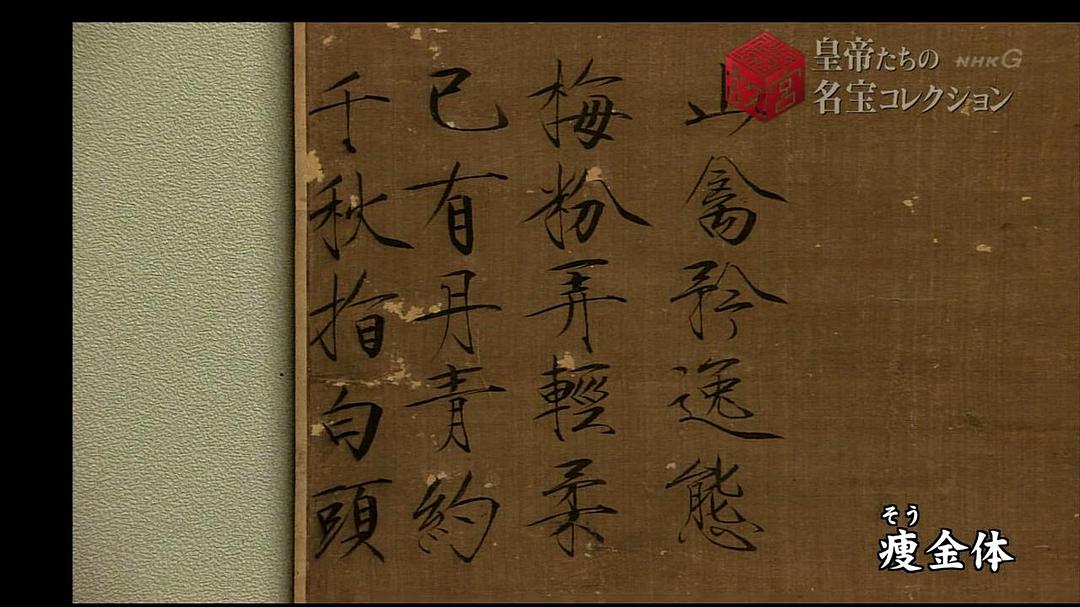 山禽矜逸態
梅粉弄輕柔
已有丹青約
千秋指白頭
皇帝たちの
名宝コレクション
NHK G
そう
痩金体